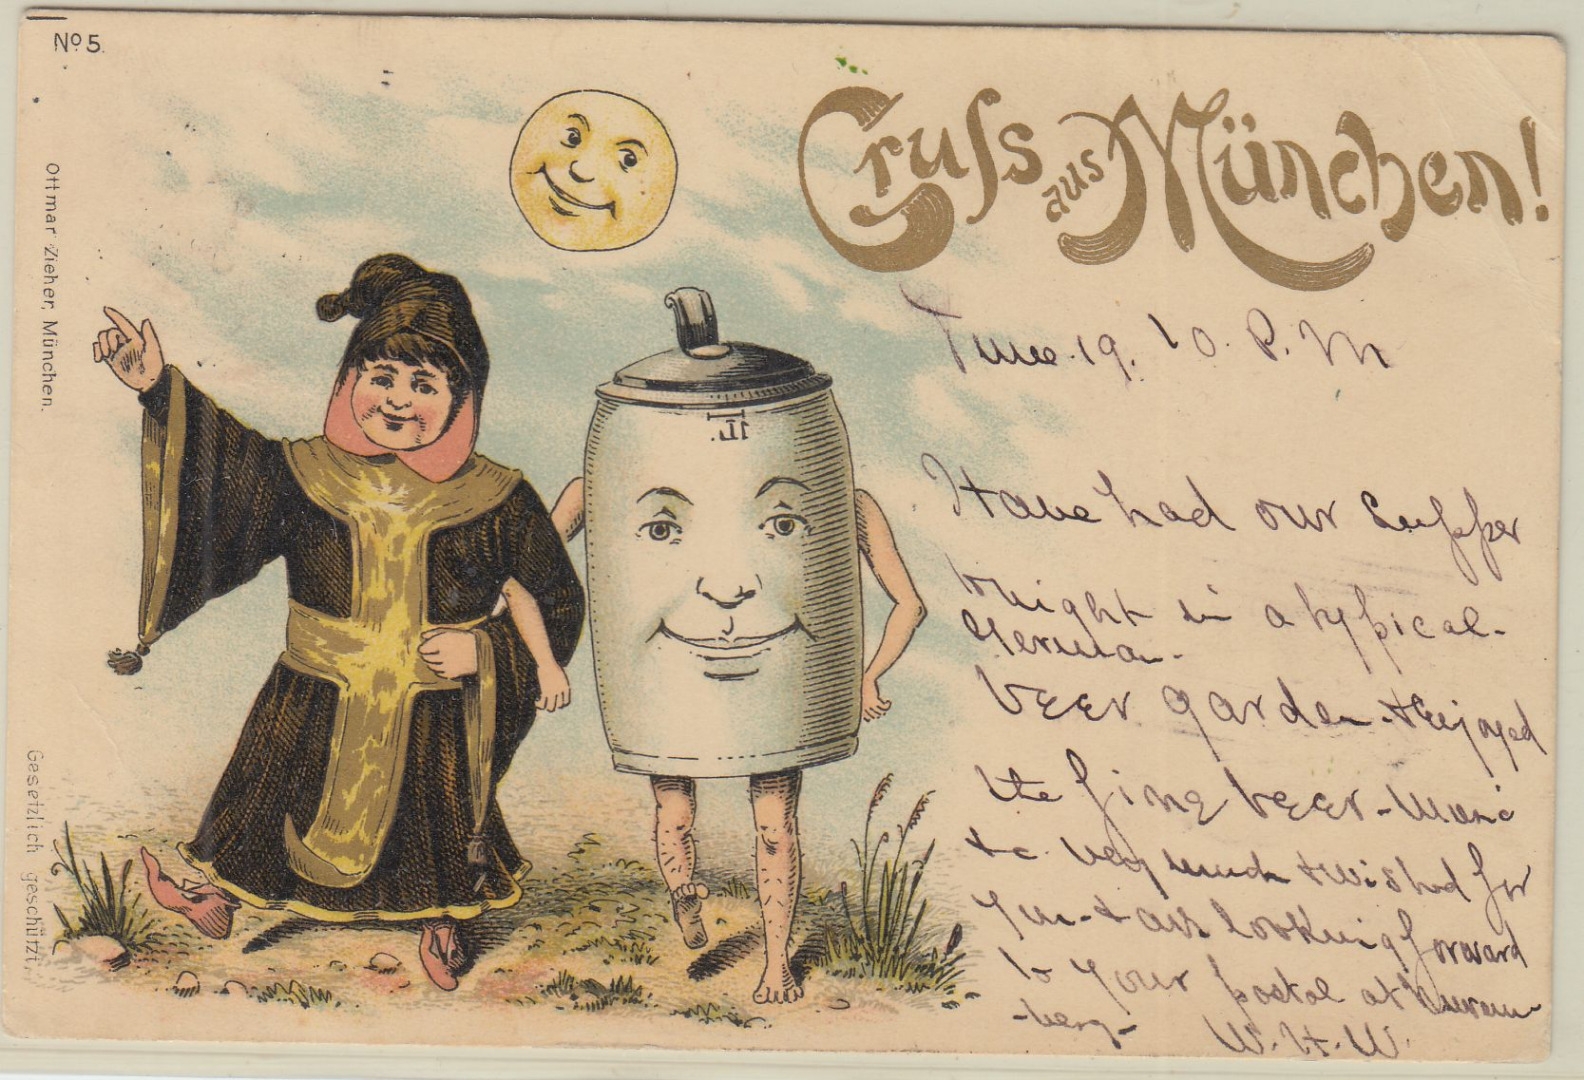 No 5.
Gruss aus München!
Ottmar Zieher, München.
Gesetzlich geschützt.
1L.
June 19. 10. P. M
Have had our supper
tonight in a typical
German
beer garden & enjoyed
the fine beer - music
&c very much & wished for
you - & are looking forward
to your postal at Nurem
-berg -
W. H. W.